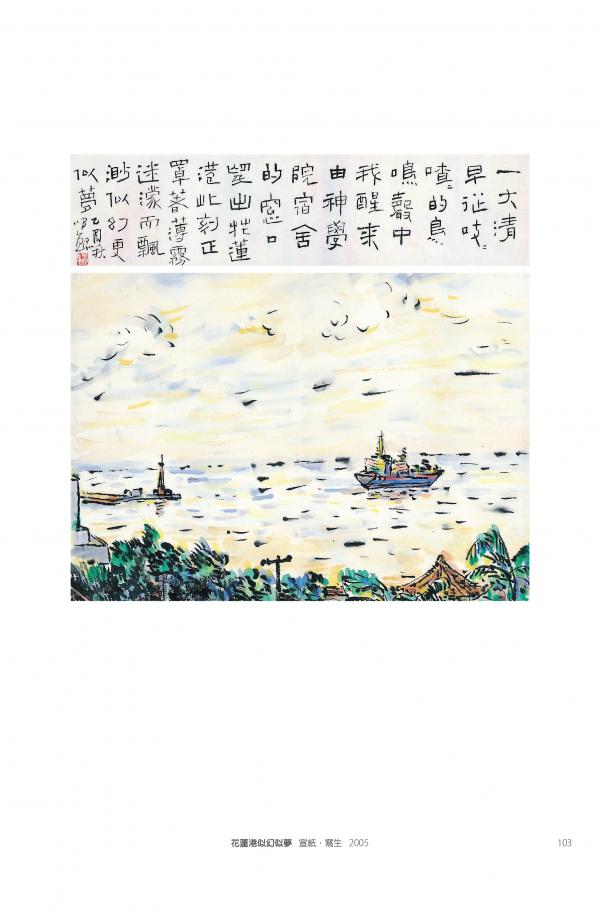 一大清
早從吱〻
喳〻的鳥
鳴聲中
我醒來
由神學
院宿舍
的窗口
望出花蓮
港此刻正
罩著薄霧
迷濛而飄
渺似幻更
似夢 乙酉秋
花蓮港似幻似夢 宣紙・寫生 2005
103